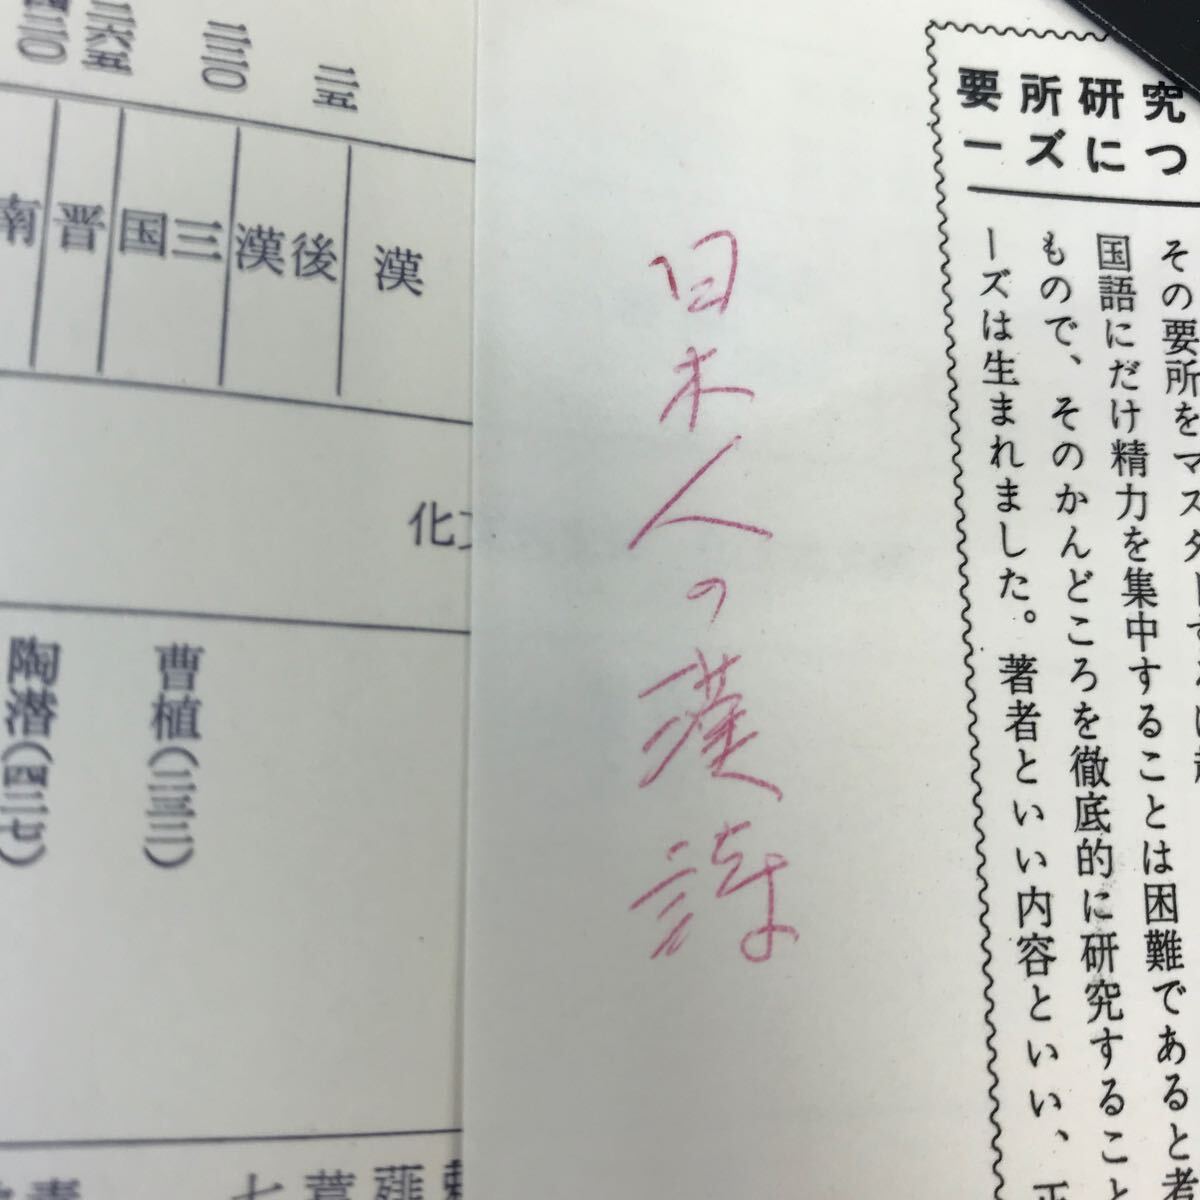 究つ
研に
所ズ
要ー
その要所をマスターするに
国語にだけ精力を集中することは困難であると考
もので、そのかんどころを徹底的に研究すること
ーズは生まれました。著者といい内容といい、正
日本人の漢詩
二五
二二〇
二六五
四二〇
漢
後漢
三国
晋
南
文化
曹植(二三二)
陶潜(四二七)
薤
蒿
七